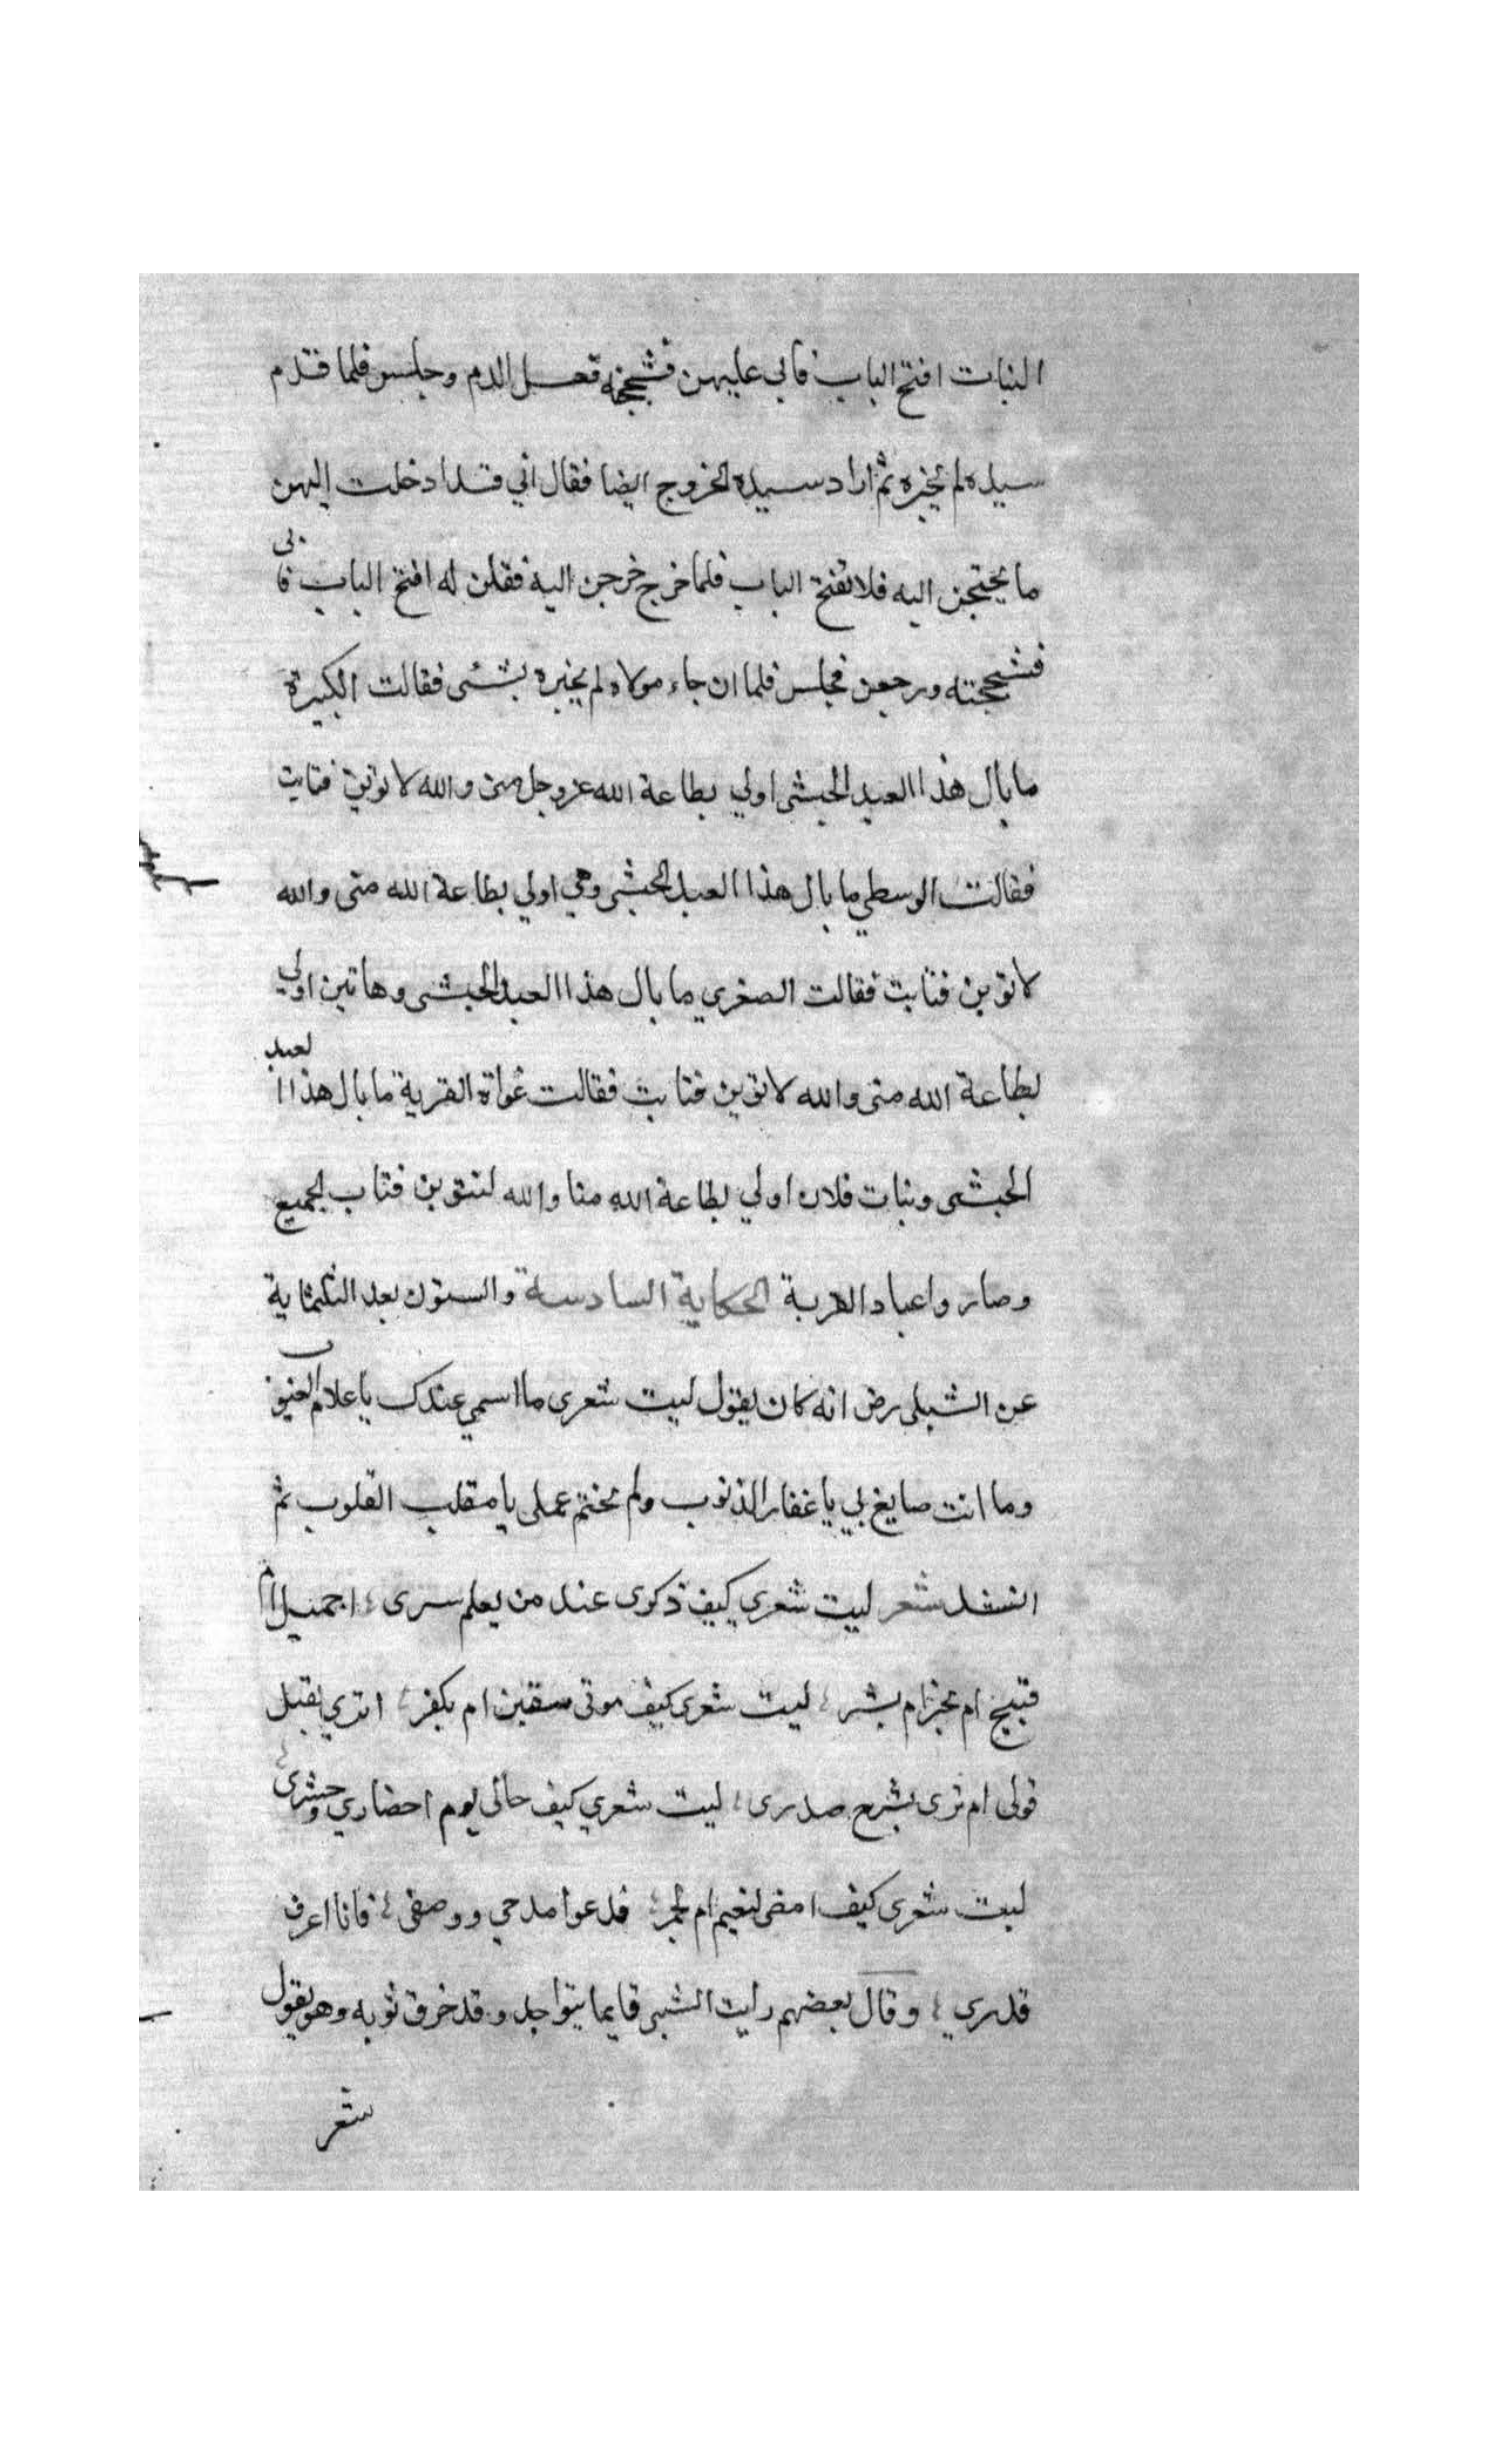 البنات افتح الباب فابي عليهن فشججنه فغسل الدم وجلس فلما قدم
سيده لم يخبره ثم اراد سيده الخروج ايضا فقال اني قد ادخلت إليهن
ما يحتجن اليه فلا تفتح الباب فلما خرج خرجن اليه فقلن له افتح الباب فابى
فشججته ورجعن فجلس فلما ان جاء مولاه لم يخبره بشئ فقالت الكبيرة
ما بال هذا العبد الحبشى اولي بطاعة الله عز وجل منى والله لاتوبن فتابت
فقالت الوسطي ما بال هذا العبد الحبشى وهي اولي بطاعة الله منى والله
لاتوبن فتابت فقالت الصغري ما بال هذا العبد الحبشى وهاتين اولي
بطاعة الله منى والله لاتوبن فتابت فقالت غواة القرية ما بال هذا العبد
الحبشى وبنات فلان اولي بطاعة الله منا والله لنتوبن فتاب الجميع
وصاروا عباد القرية الحكاية السادسة والستون بعد الثلثماية
عن الشبلى رض انه كان يقول ليت شعرى ما اسمي عندك يا علام الغيوب
وما انت صايغ بي يا غفار الذنوب ولم تختم عملى يا مقلب القلوب ثم
انشد شعر ليت شعري كيف ذكرى عند من يعلم سرى اجميل ام
قبيح ام بخير ام بشر ليت شعرى كيف موتى بيقين ام بكفر اترى يقبل
قولى ام ترى يشرح صدرى ليت شعري كيف حالى يوم احضاري وحشرى
ليت شعرى كيف امضى لنعيم ام لجمر فدعوا مدحي ووصفى فانا اعرف
قدري وقال بعضهم رايت الشبلى قايما يتواجد وقد خرق ثوبه وهو يقول
شعر